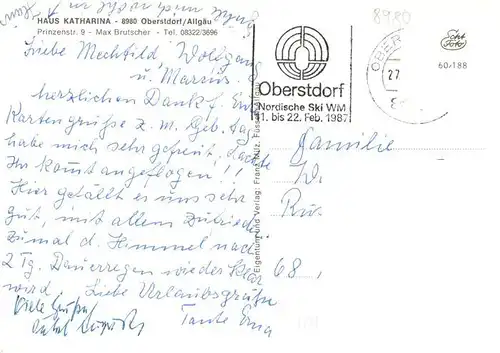 HAUS KATHARINA - 8980 Oberstdorf/Allgäu
Prinzenstr. 9 - Max Brutscher - Tel. 08322/3696
Liebe Mechtild, Wolfgang
u. Marcus.
herzlichen Dank f. Eure
Kartengrüße z. m. Geb. tag
habe mich sehr gefreut, dachte
Ihr kommt angeflogen!!
Hier gefällt es uns sehr
gut, mit allem zufrieden
zumal d. Himmel nach
2 Tg. Dauerregen wieder klar
wird. Liebe Urlaubsgrüße
Tante Erna
Viele Grüße
Eigentum und Verlag: Franz Milz, Füssen/Allgäu
8980
Oberstdorf
Nordische Ski WM
11. bis 22. Feb. 1987
OBER
27
Echt
Foto
60/188
Familie
W.
Ru
68